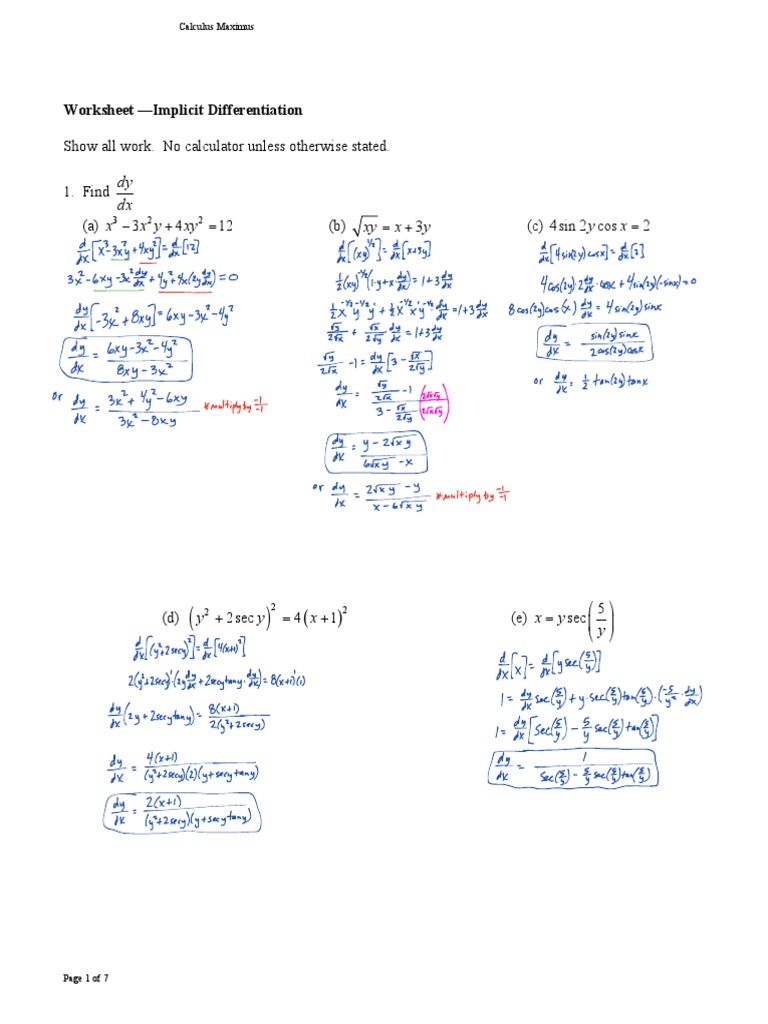 Calculus Maximus
Worksheet —Implicit Differentiation
Show all work. No calculator unless otherwise stated.
1. Find dy/dx
(a) x³ − 3x²y + 4xy² = 12
d/dx[x³−3x²y+4xy²]=d/dx[12]
3x²−6xy−3x²dy/dx+4y²+4x(2y dy/dx)=0
dy/dx[−3x²+8xy]=6xy−3x²−4y²
dy/dx = (6xy−3x²−4y²)/(8xy−3x²)
or dy/dx = (3x²+4y²−6xy)/(3x²−8xy) *multiply by −1/−1
(b) √xy = x + 3y
d/dx[(xy)^½]=d/dx[x+3y]
½(xy)^−½(1·y+x dy/dx)=1+3dy/dx
½x^−½y^−½y¹+½x^−½x¹y^−½ dy/dx=1+3dy/dx
√y/2√x + √x/2√y dy/dx=1+3dy/dx
√y/2√x −1=dy/dx[3−√x/2√y]
dy/dx = (√y/2√x −1)/(3−√x/2√y) (2√x√y/2√x√y)
dy/dx = (y−2√xy)/(6√xy −x)
or dy/dx = (2√xy −y)/(x−6√xy) *multiply by −1/−1
(c) 4sin 2y cos x = 2
d/dx[4sin(2y)cosx]=d/dx[2]
4cos(2y)·2dy/dx·cosx+4sin(2y)(−sinx)=0
8cos(2y)cos(x)dy/dx=4sin(2y)sinx
dy/dx = sin(2y)sinx/2cos(2y)cosx
or dy/dx=½tan(2y)tanx
(d) (y² + 2sec y)² = 4(x + 1)²
d/dx[(y²+2secy)²]=d/dx[4(x+1)²]
2(y²+2secy)¹(2y dy/dx+2secytany·dy/dx)=8(x+1)¹(1)
dy/dx(2y+2secytany)=8(x+1)/2(y²+2secy)
dy/dx = 4(x+1)/(y²+2secy)(2)(y+secytany)
dy/dx = 2(x+1)/(y²+2secy)(y+secytany)
(e) x = y sec(5/y)
d/dx[x]=d/dx[ysec(5/y)]
1=dy/dx sec(5/y)+y·sec(5/y)tan(5/y)·(−5/y²·dy/dx)
1=dy/dx[sec(5/y)−5/y sec(5/y)tan(5/y)]
dy/dx = 1/(sec(5/y)−5/y sec(5/y)tan(5/y))
Page 1 of 7